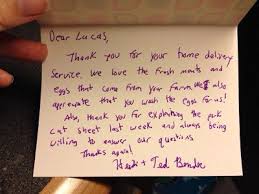 Dear Lucas,
Thank you for your home delivery
service. We love the fresh meats and
eggs that come from your farm. We also
appreciate that you wash the eggs for us!
Also, thank you for explaining the pork
cut sheet last week and always being
willing to answer our questions.
Thanks again!
Heidi + Ted